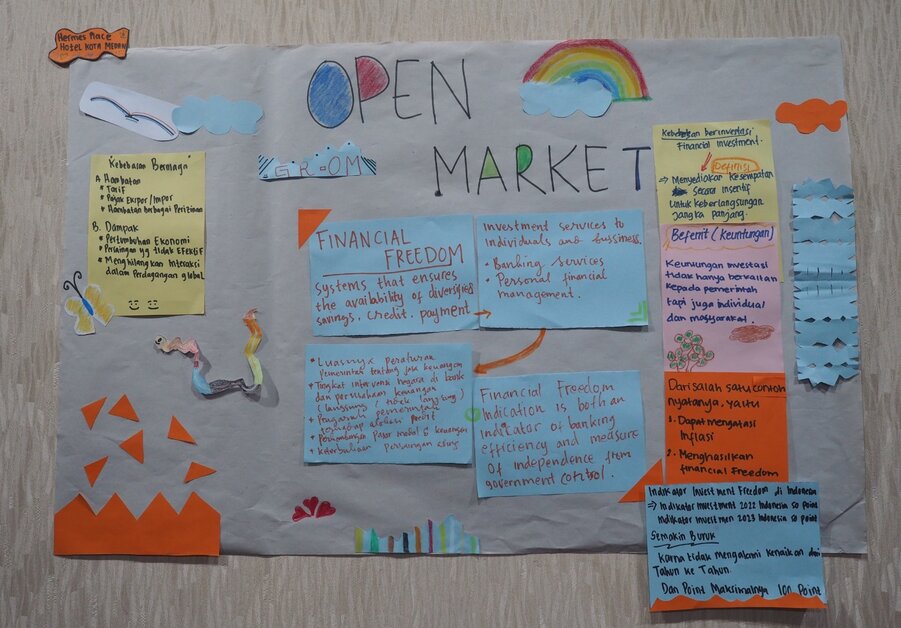 Hermes Place
Hotel KOTA MEDAN
OPEN
MARKET
GROM
"Kebebasan Bernagn"
A. Hambatan
* Tarif
* Pajak Expor/Impor
* Hambatan berbagai Perizinan
B. Dampak
* Pertumbuhan Ekonomi
* Persaingan yg tidak EFektiF
* Menghilangkan Interaksi
dalam Perdagangan global
FINANCIAL
FREEDOM
systems that ensures
the availability of diversified
savings. credit. payment
Investment services to
Individuals and bussiness.
• Banking services
• Personal financial
management.
• Luasnya peraturan
pemerintah tentang jasa keuangan
• Tingkat intervensi negara di bank
dan perusahaan keuangan
(langsung / tidak langsung)
• Pengaruh pemerintah
terhadap alokasi
• Perkembangan Pasar modal & keuangan
• Keterbukaan
Financial Freedom
Indication is both an
indicator of banking
efficiency and measure
Of independence from
government control.
Kebebasan berinvestasi
Financial investment.
Definisi
⇒ Menyediakan kesempatan
Secara insentif
untuk keberlangsungan
jangka panjang.
Befenit (keuntungan)
Keuntungan investasi
tidak hanya berkaitan
kepada pemerintah
tapi juga individual
dan masyarakat.
Dari salah satu contoh
nyatanya, yaitu
1. Dapat mengatasi
Inflasi
2. Menghasilkan
financial Freedom
Indikator Investment Freedom di Indonesia
⇒ Indikator Investment 2022 Indonesia 50 point
Indikator Investmen 2023 Indonesia 50 point
Semakin Buruk
Karna tidak Mengalami kenaikan dari
Tahun ke Tahun.
Dan Point Maksimalnya 100 Point